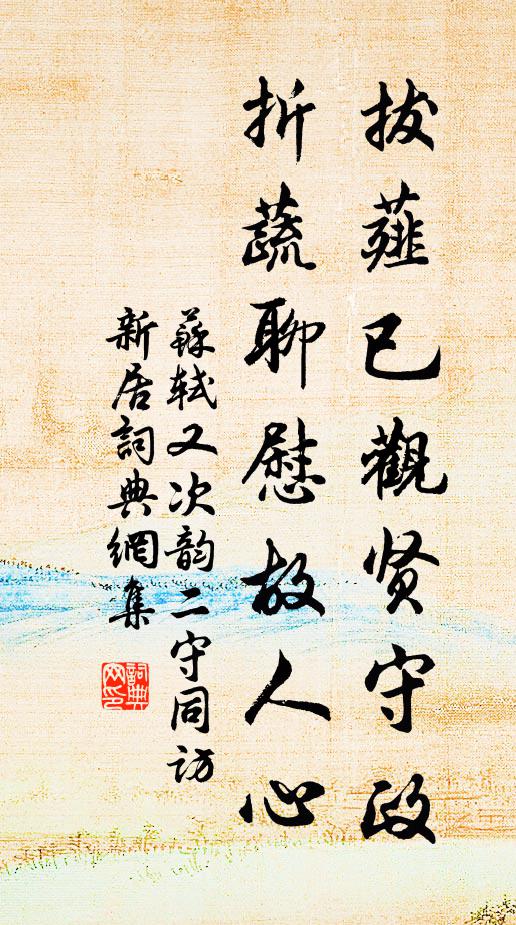 拔薤已觀贤守政
折蔬聊慰故人心
蘇轼又次韵二守同访
新居詞典網集
詞典网印